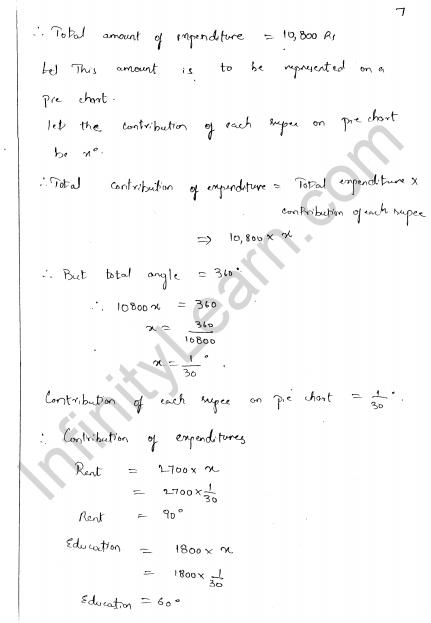 7
∴ Total amount of expenditure = 10,800 Rs
Let This amount is to be represented on a
pie chart.
let the contribution of each rupee on pie chart
be x°.
∴ Total contribution of expenditure = Total expenditure ×
contribution of each rupee
⇒ 10,800 × x
∴ But total angle = 360°
∴ 10800x = 360
x = 360/10800
x = 1/30°.
Contribution of each rupee on pie chart = 1/30°.
∴ Contribution of expenditures
Rent = 2700 × x
= 2700 × 1/30
Rent = 90°
Education = 1800 × x
= 1800 × 1/30
Education = 60°
InfinityLearn.com